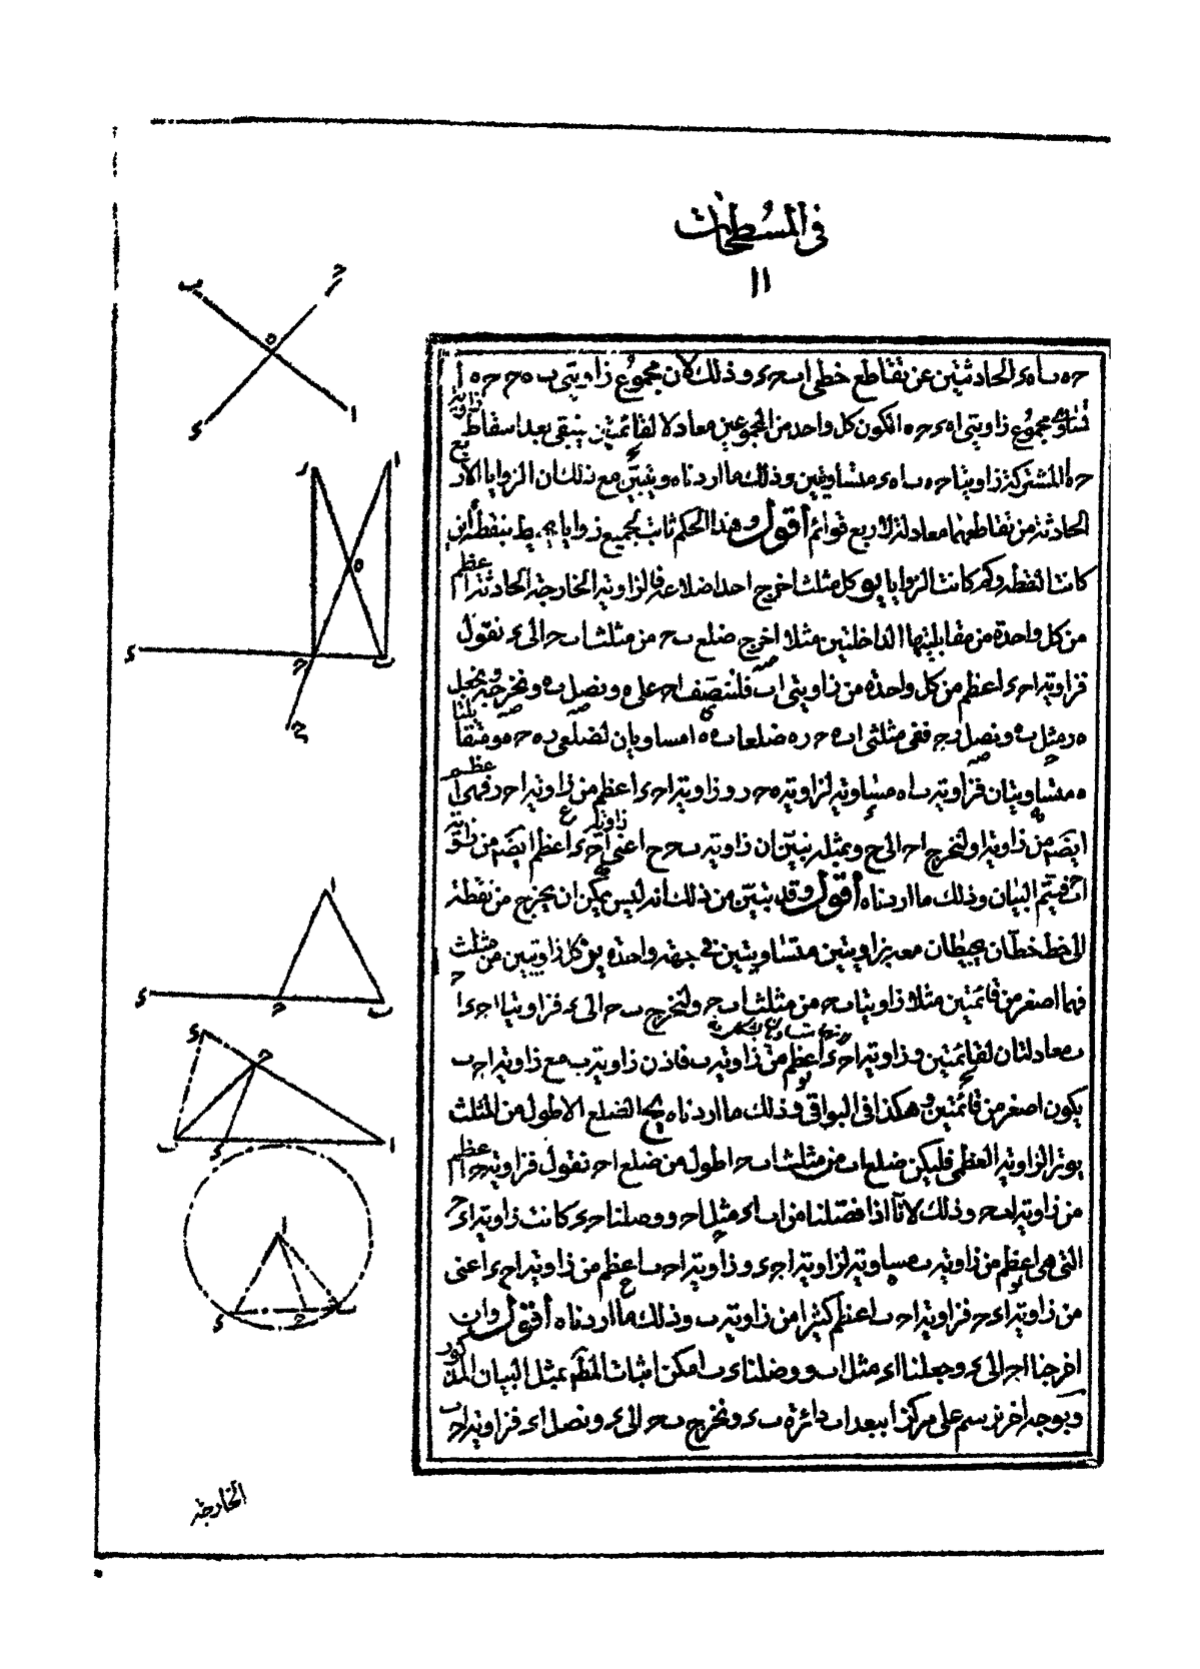 في المسطحات
١١
حه ب اه ء الحادثتين عن تقاطع خطي اب حء وذلك لان مجموع زاويتي ب ه ح ح ه ا
تساوي مجموع زاويتي اهء حه ا لكون كل واحد من المجموعين معادلا لقائمتين يبقى بعد اسقاط زاوية
حه ا المشتركة زاويتا حه ب اهء متساويتين وذلك ما اردناه وتبيّن مع ذلك ان الزوايا الاربع
الحادثة من تقاطعهما معادلة لاربع قوائم أقول وهذا الحكم ثابت لجميع زوايا يحيط بنقطة أين
كانت النقطة وكم كانت الزوايا يو كل مثلث اخرج احد اضلاعه فالزاوية الخارجة الحادثة اعظم
من كل واحدة من مقابلتيها الداخلتين مثلا اخرج ضلع ب ح من مثلث اب ح الى ء نقول
فزاوية احء اعظم من كل واحدة من زاويتي اب فلننصّف اح على ه ونصل ب ه ونخرجه ونجعل
ه ر مثل ب ه ونصل رح ففي مثلثي اب ه ح ره ضلعا ب ه ه ا مساويان لضلعي ره ه ح وزاويتا
ه متساويتان فزاوية ب اه مساوية لزاوية ه ح ر وزاوية احء اعظم من زاوية اح ر فهي اعظم
ايضًا من زاوية ا ولنخرج اح الى ح وبمثله نبيّن ان زاوية ب ح ح اعني زاوية احء اعظم ايضًا من زاوية
اب ح فيتم البيان وذلك ما اردناه أقول وقد تبيّن من ذلك انه ليس يمكن ان يخرج من نقطة
الى خط خطّان يحيطان معه بزاويتين متساويتين في جهة واحدة يز كل زاويتين من مثلث
فهما اصغر من قائمتين مثلا زاويتا ب ح من مثلث اب ح ولنخرج ب ح الى ء فزاويتا احء احب
معادلتان لقائمتين وزاوية احء اعظم من زاوية ب فاذن زاوية ب مع زاوية اح ب
يكون اصغر من قائمتين وهكذا في البواقي وذلك ما اردناه يح الضلع الاطول من المثلث
يوتر الزاوية العظمى فليكن ضلع اب من مثلث اب ح اطول من ضلع اح نقول فزاوية ح اعظم
من زاوية اب ح وذلك لانّا اذا فصّلنا من اب اء مثل اح ووصلنا حء كانت زاوية اءح
التي هي اعظم من زاوية ب مساوية لزاوية احء وزاوية اح ب اعظم من زاوية احء اعني
من زاوية اءح فزاوية اح ب اعظم كثيرا من زاوية ب وذلك ما اردناه أقول وان
اخرجنا اح الى ء وجعلنا اء مثل اب ووصلنا ءب امكن اثبات المطلوب بمثل البيان المذكور
وبوجه اخر نرسم على مركز ا ببعد اب دائرة ب ء ونخرج ب ح الى ء ونصل اء فزاوية اح ب
الخارجة
ب
ح
ه
ء
ا
ر
ا
ه
ء
ح
ب
ح
ا
ء
ح
ب
ء
ح
ب
ء
ا
ا
ء
ح
ب